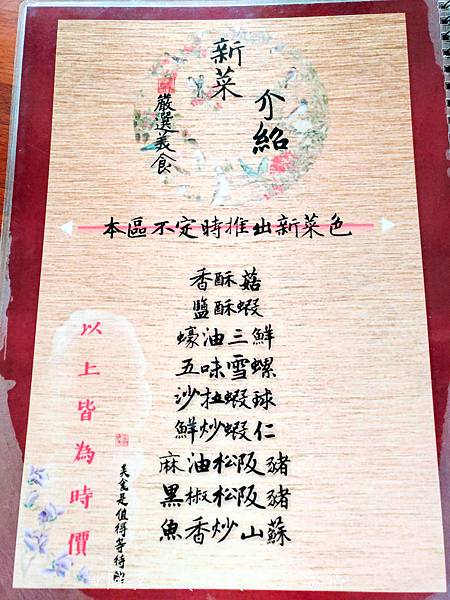 新菜
介紹
嚴選美食
本區不定時推出新菜色
香酥菇
鹽酥蝦
蠔油三鮮
五味雪螺
沙拉蝦球
鮮炒蝦仁
麻油松阪豬
黑椒松阪豬
魚香炒山蘇
美食是值得等待的
以上皆為時價